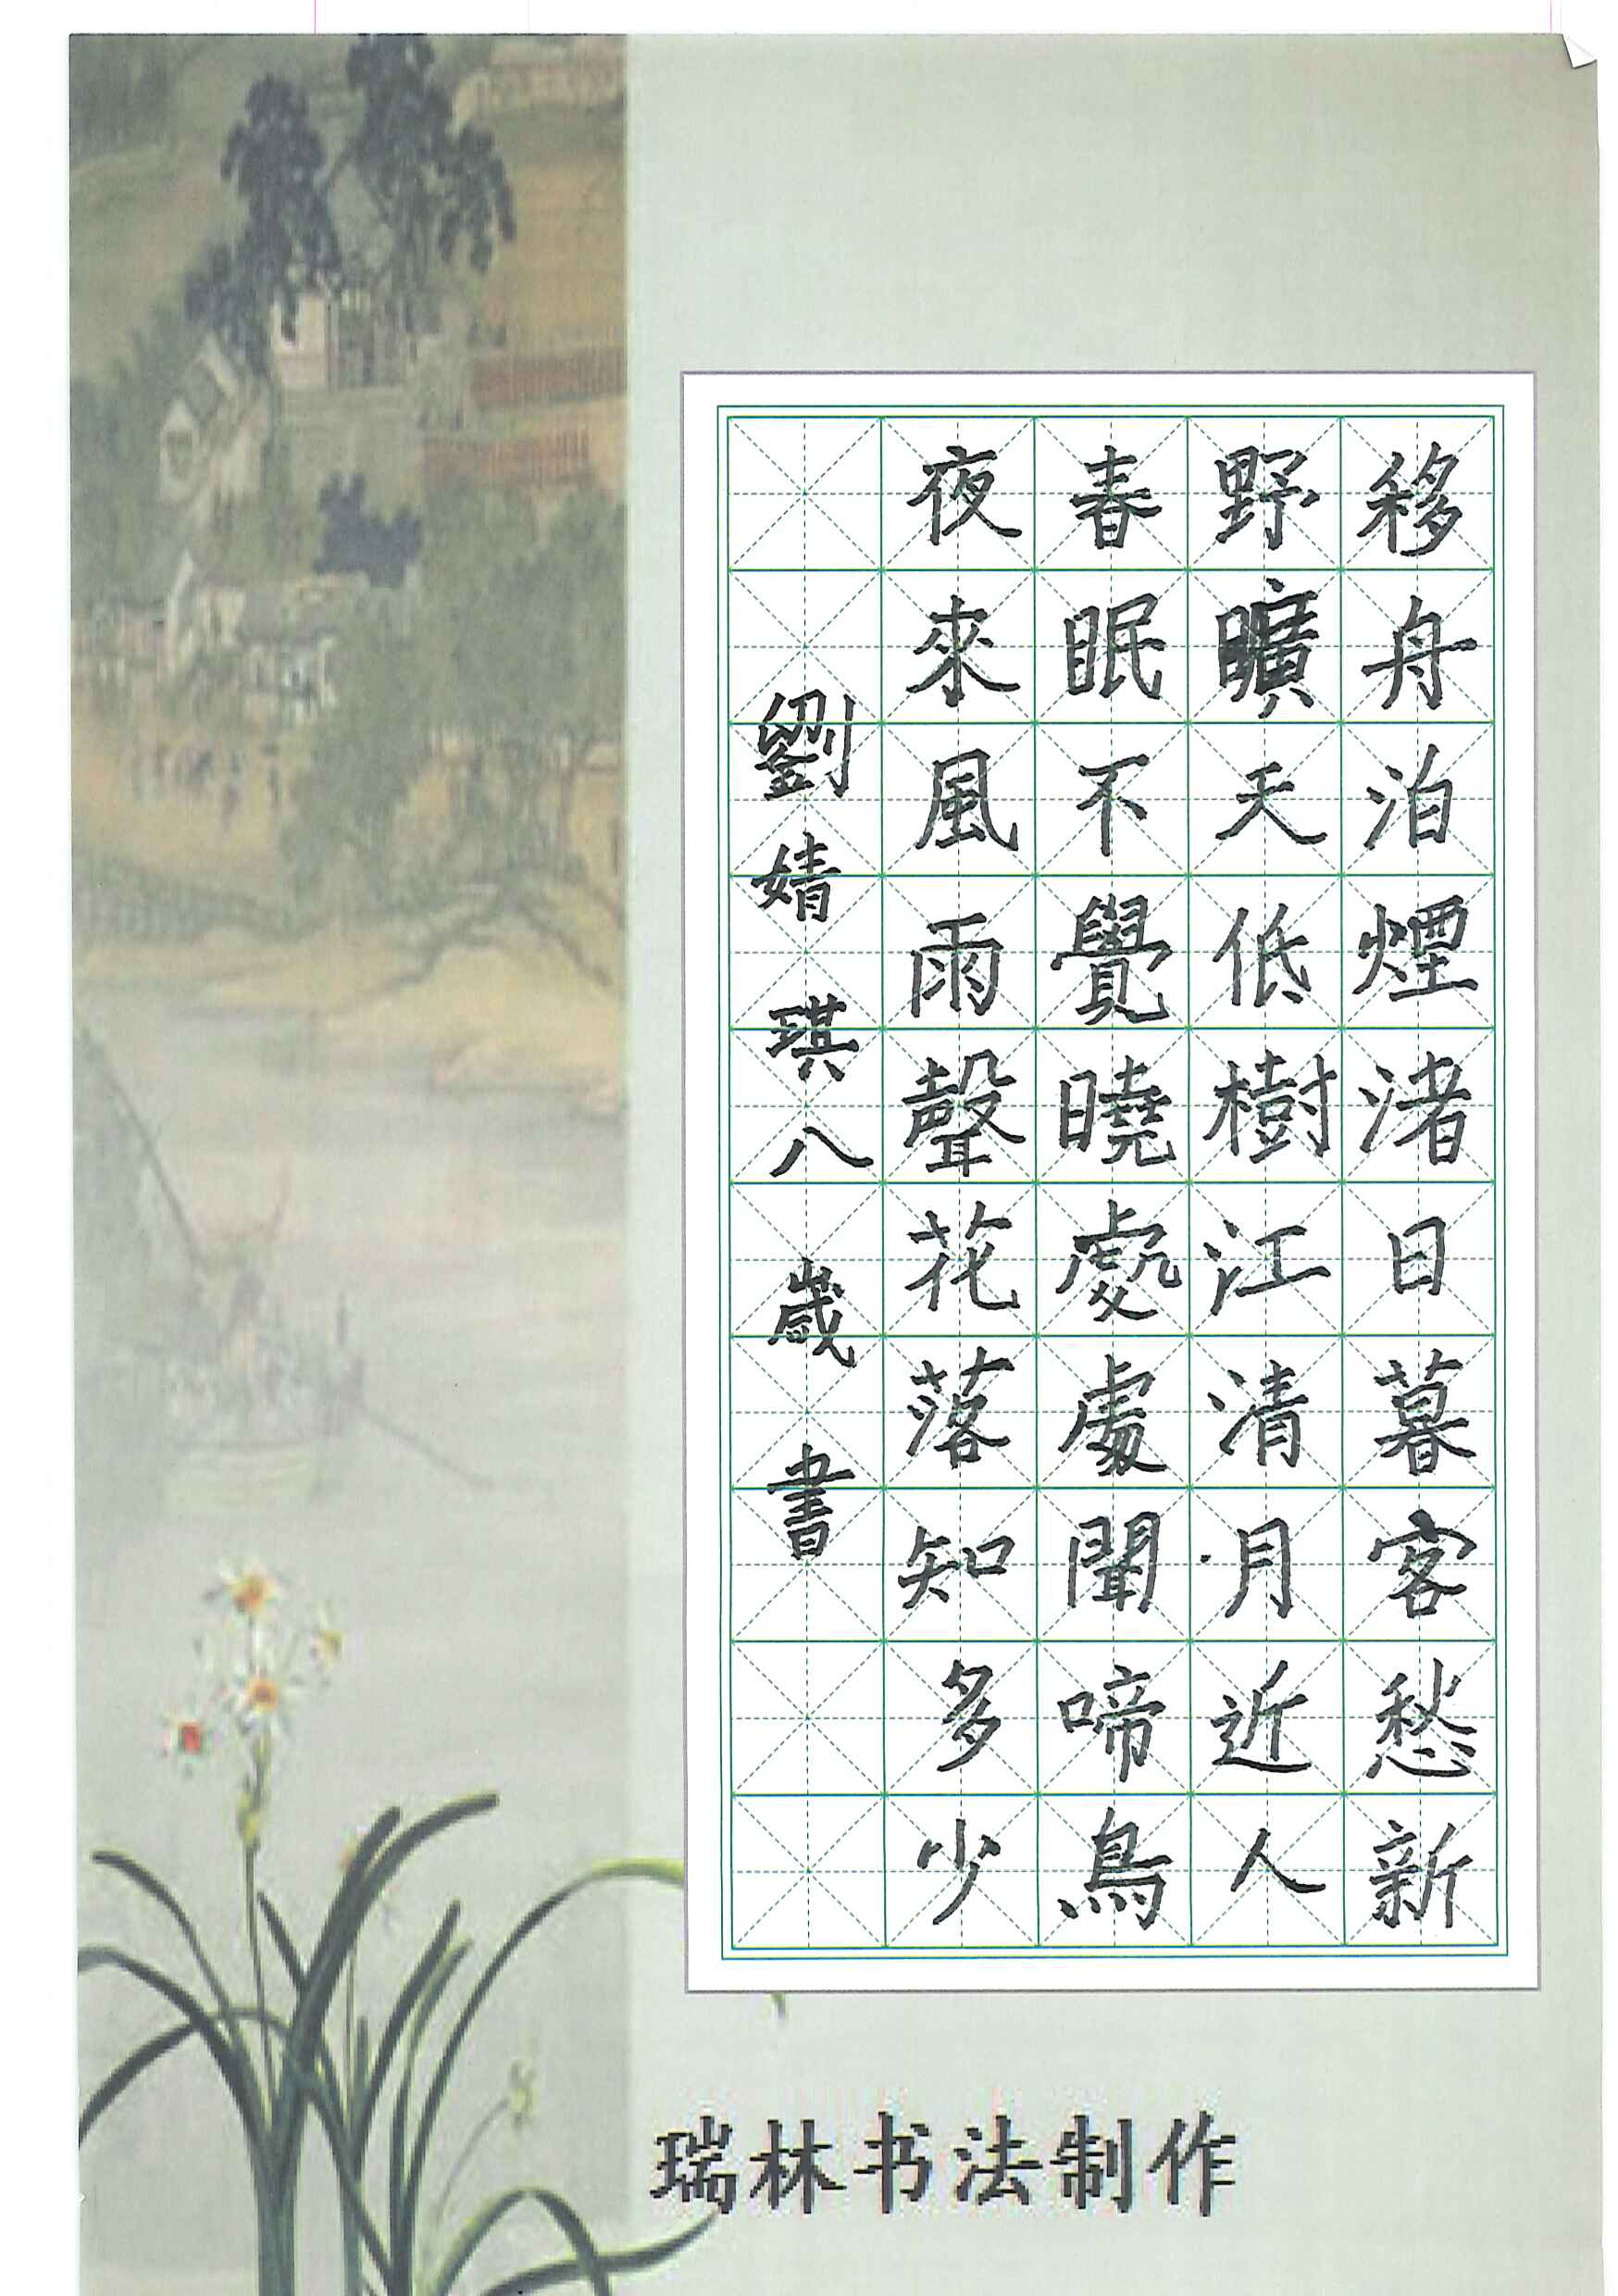 移舟泊煙渚日暮客愁新
野曠天低樹江清月近人
春眠不覺曉處處聞啼鳥
夜來風雨聲花落知多少
劉婧琪八歲書
瑞林书法制作